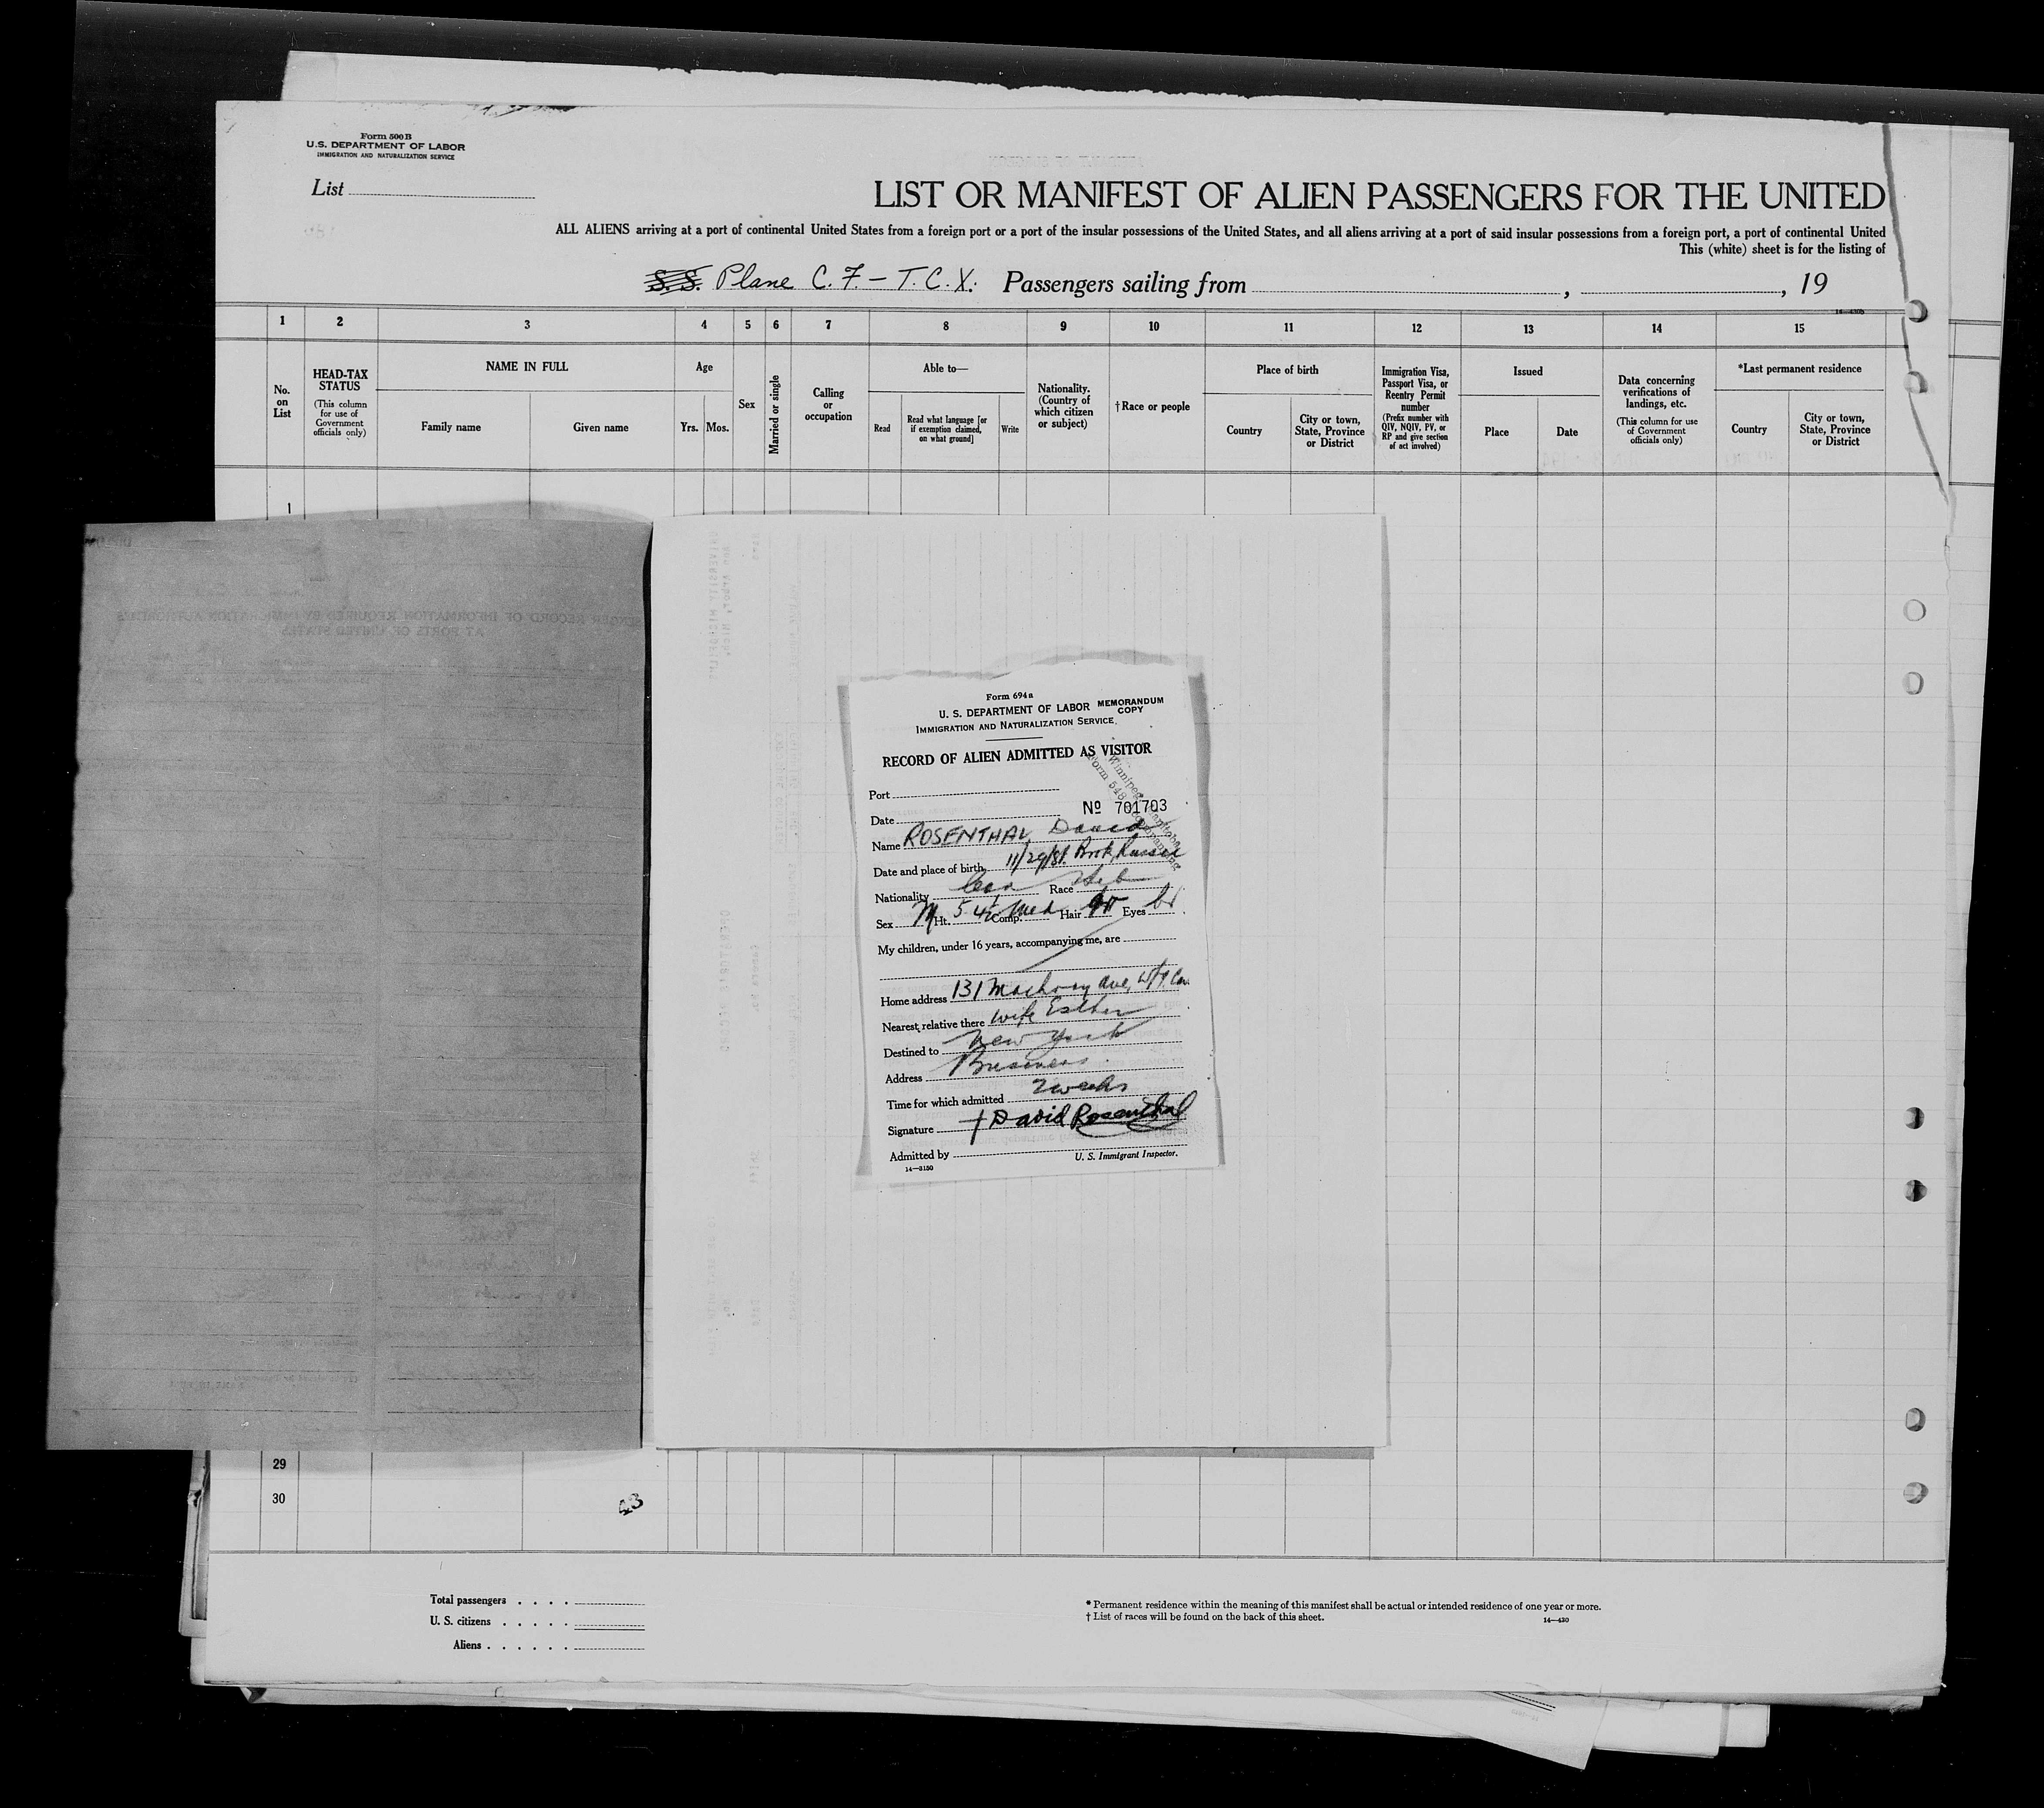 Form 500 B
U.S. DEPARTMENT OF LABOR
IMMIGRATION AND NATURALIZATION SERVICE
List
LIST OR MANIFEST OF ALIEN PASSENGERS FOR THE UNITED
ALL ALIENS arriving at a port of continental United States from a foreign port or a port of the insular possessions of the United States, and all aliens arriving at a port of said insular possessions from a foreign port, a port of continental United
This (white) sheet is for the listing of
S.S. Plane C. F. – T. C. X. Passengers sailing from , , 19
1 2 3 4 5 6 7 8 9 10 11 12 13 14 15
No. on List
HEAD-TAX STATUS
(This column for use of Government officials only)
NAME IN FULL
Family name Given name
Age
Yrs. Mos.
Sex
Married or single
Calling or occupation
Able to—
Read
Read what language [or if exemption claimed, on what ground]
Write
Nationality. (Country of which citizen or subject)
†Race or people
Place of birth
Country
City or town, State, Province or District
Immigration Visa, Passport Visa, or Reentry Permit number
(Prefix number with QIV, NQIV, PV, or RP and give section of act involved)
Issued
Place Date
Data concerning verifications of landings, etc.
(This column for use of Government officials only)
*Last permanent residence
Country
City or town, State, Province or District
1
Form 694a
U. S. DEPARTMENT OF LABOR MEMORANDUM COPY
IMMIGRATION AND NATURALIZATION SERVICE
RECORD OF ALIEN ADMITTED AS VISITOR
Winnipeg, Manitoba
Form 548
Port
Nº 701703
Date
Name ROSENTHAL, David
Date and place of birth 11/29/81 Russia
Nationality Can Race Heb
Sex M Ht. 5 4½ Comp. Med Hair gr Eyes br
My children, under 16 years, accompanying me, are
Home address 131 Machray Ave,
Nearest relative there wife Esther
Destined to New York
Address Business
Time for which admitted 2 weeks
Signature David Rosenthal
Admitted by
U. S. Immigrant Inspector.
14—3150
29
30
43
Total passengers
U. S. citizens
Aliens
* Permanent residence within the meaning of this manifest shall be actual or intended residence of one year or more.
† List of races will be found on the back of this sheet.
14—430